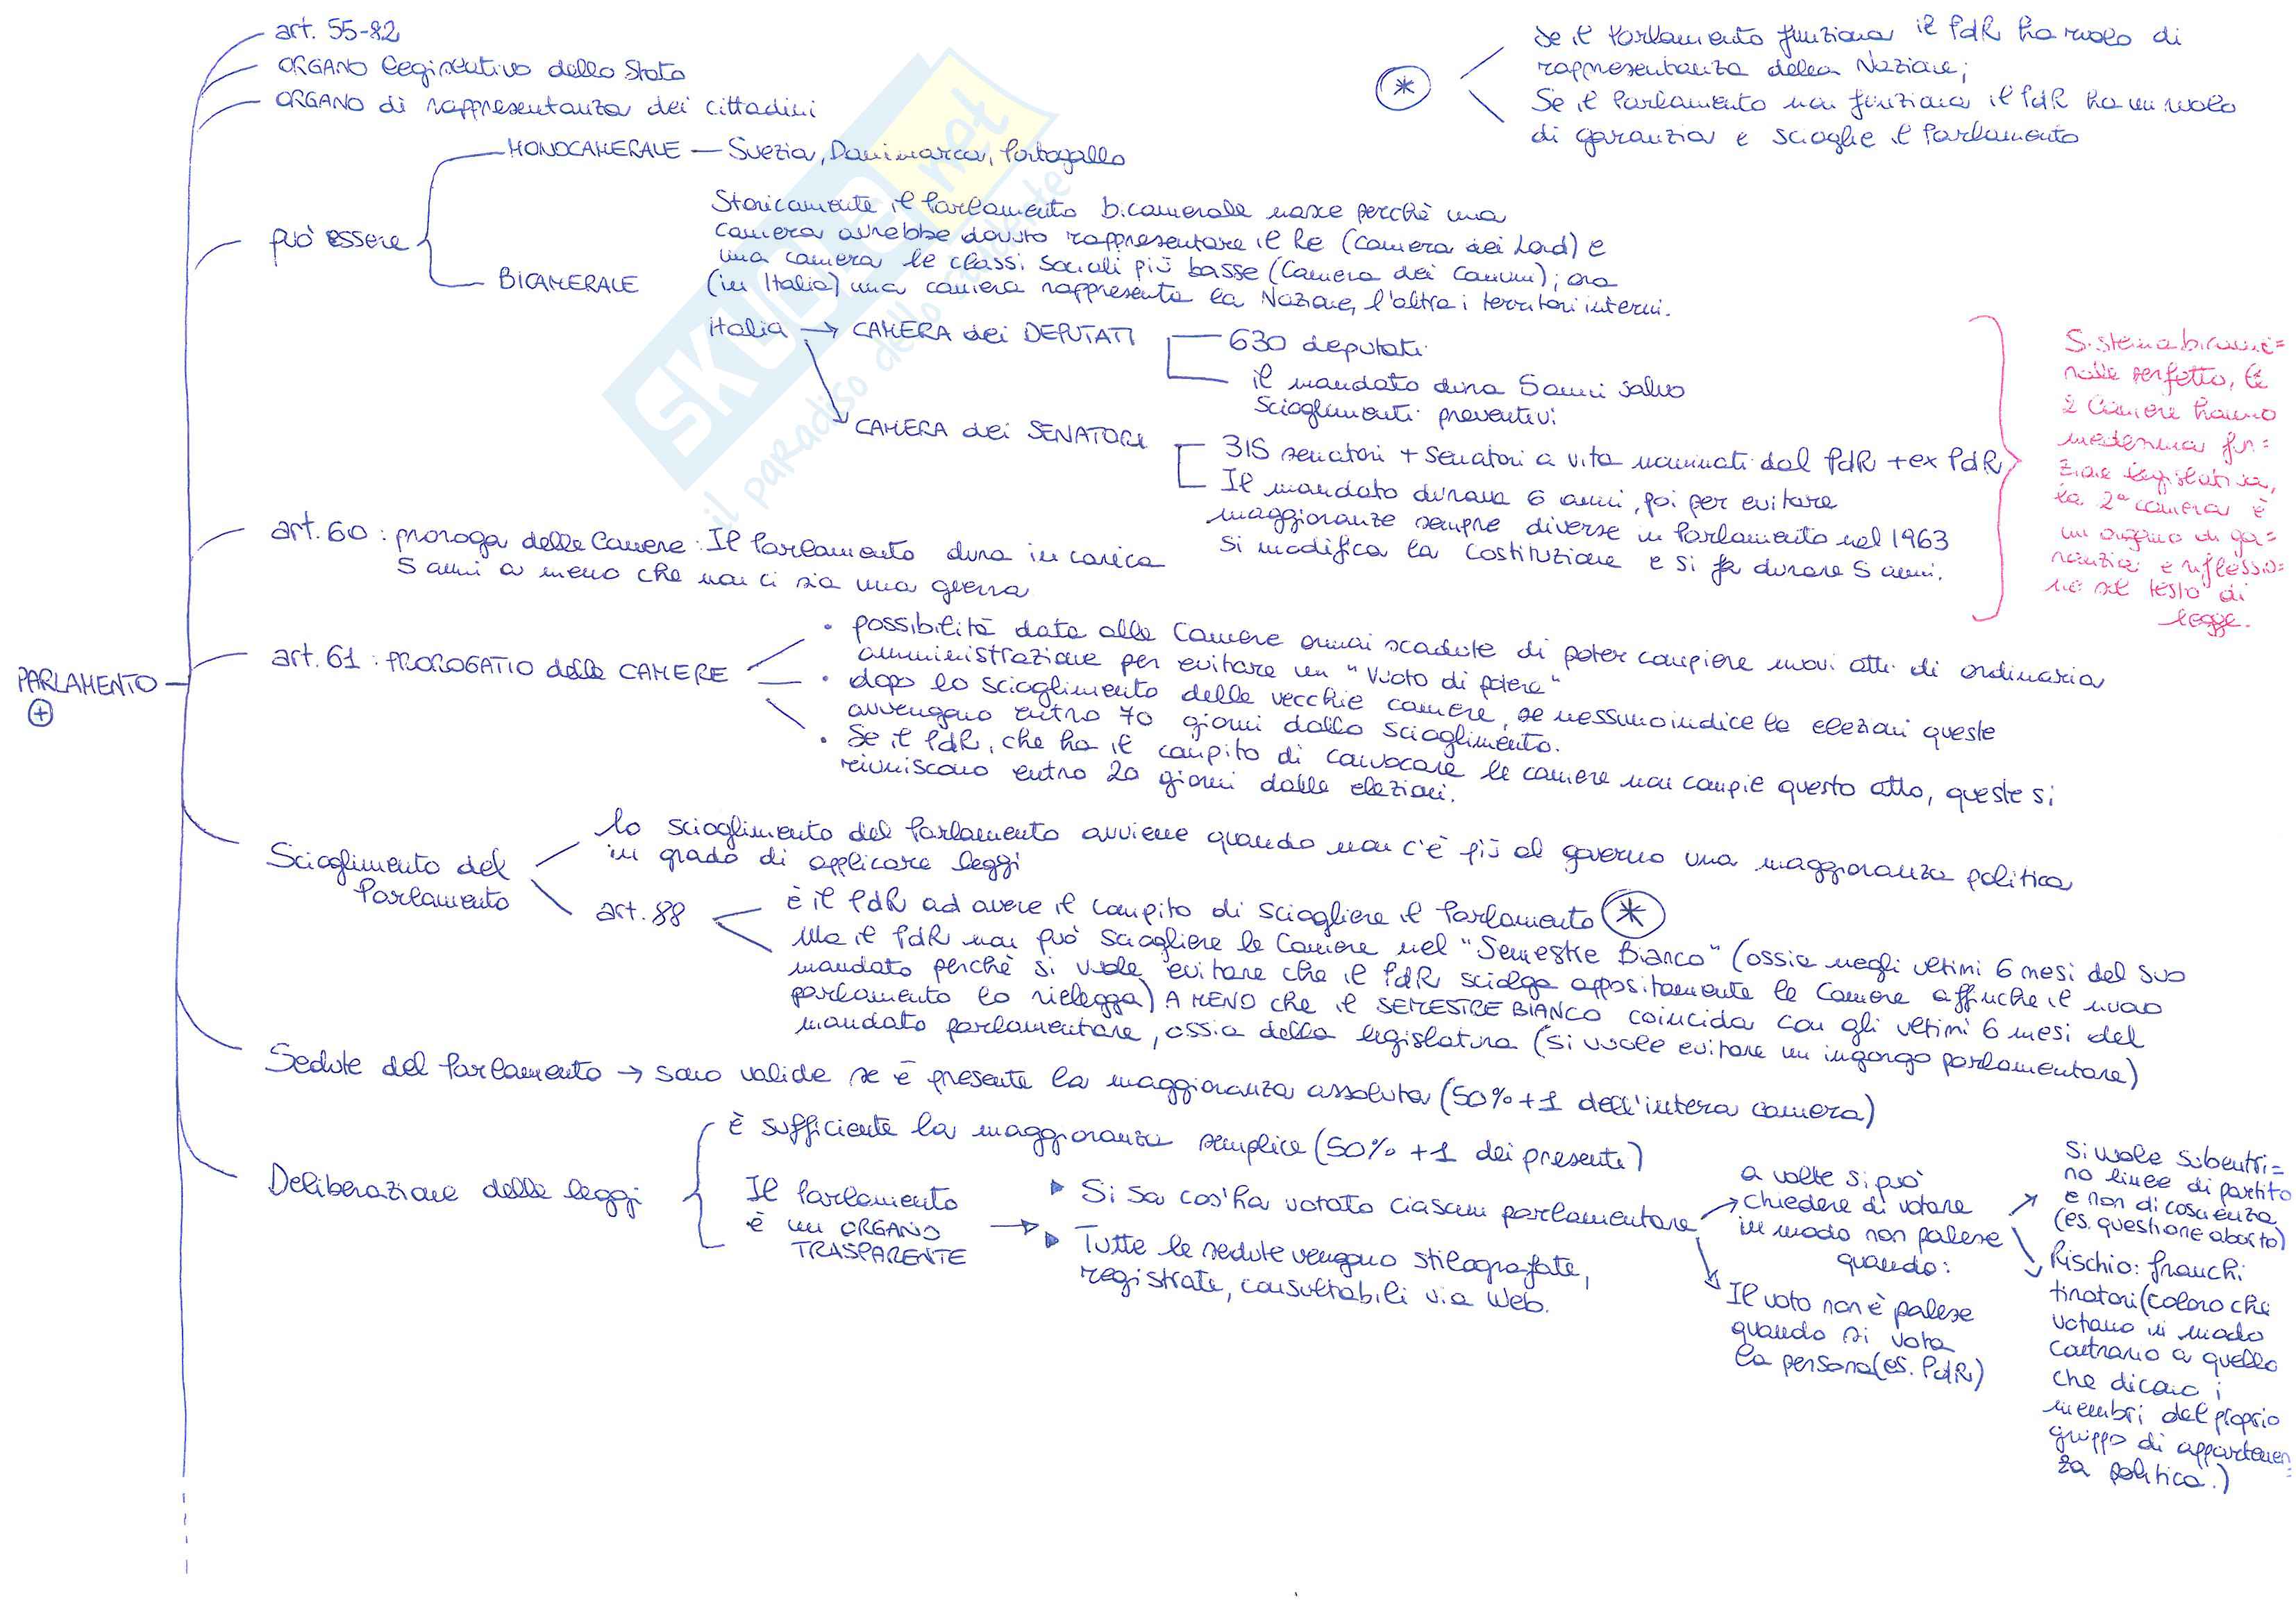 art. 55-82
ORGANO legislativo dello Stato
ORGANO di rappresentanza dei cittadini
Se il Parlamento funziona il PdR ha ruolo di
rappresentanza della Nazione;
*
Se il Parlamento non funziona il PdR ha un ruolo
di garanzia e scioglie il Parlamento
può essere
MONOCAMERALE — Svezia, Danimarca, Portogallo
BICAMERALE
Storicamente il Parlamento bicamerale nasce perchè una
camera avrebbe dovuto rappresentare il Re (Camera dei Lord) e
una camera le classi sociali più basse (Camera dei Comuni); ora
(in Italia) una camera rappresenta la Nazione, l'altra i territori interni.
Italia → CAMERA dei DEPUTATI
630 deputati
il mandato dura 5 anni salvo
scioglimenti preventivi
CAMERA dei SENATORI
315 senatori + senatori a vita nominati dal PdR + ex PdR
Il mandato durava 6 anni, poi per evitare
maggioranze sempre diverse in Parlamento nel 1963
si modifica la Costituzione e si fa durare 5 anni.
Sistema bicame=
rale perfetto, le
2 Camere hanno
medesima fun=
zione legislativa,
la 2ª camera è
un organo di ga=
ranzia e riflessio=
ne sul testo di
legge.
art. 60: proroga delle Camere: Il Parlamento dura in carica
5 anni a meno che non ci sia una guerra
PARLAMENTO
+
art. 61: PROROGATIO delle CAMERE
• possibilità data alle Camere ormai scadute di poter compiere nuovi atti di ordinaria
amministrazione per evitare un "Vuoto di potere"
• dopo lo scioglimento delle vecchie camere, se nessuno indice le elezioni queste
avvengono entro 70 giorni dallo scioglimento.
• Se il PdR, che ha il compito di convocare le camere non compie questo atto, queste si
riuniscono entro 20 giorni dalle elezioni.
Scioglimento del
Parlamento
lo scioglimento del Parlamento avviene quando non c'è più al governo una maggioranza politica
in grado di applicare leggi
art. 88
è il PdR ad avere il compito di sciogliere il Parlamento *
Ma il PdR non può sciogliere le Camere nel "Semestre Bianco" (ossia negli ultimi 6 mesi del suo
mandato perchè si vuole evitare che il PdR sciolga appositamente le Camere affinche il nuovo
parlamento lo rielegga) A MENO che il SEMESTRE BIANCO coincida con gli ultimi 6 mesi del
mandato parlamentare, ossia della legislatura (si vuole evitare un ingorgo parlamentare)
Sedute del Parlamento → sono valide se è presente la maggioranza assoluta (50% + 1 dell'intera camera)
Deliberazione delle leggi
è sufficiente la maggioranza semplice (50% + 1 dei presenti)
Il Parlamento
è un ORGANO
TRASPARENTE
Si sa cos'ha votato ciascun parlamentare
Tutte le sedute vengono stilografate,
registrate, consultabili via Web.
a volte si può
chiedere di votare
in modo non palese
quando:
Il voto non è palese
quando si vota
la persona (es. PdR)
Si vuole subentri=
no linee di partito
e non di coscienza
(es. questione aborto)
Rischio: franchi
tiratori (coloro che
votano in modo
contrario a quello
che dicono i
membri del proprio
gruppo di appartenen=
za politica.)
SKUOLA.net
il paradiso dello studente